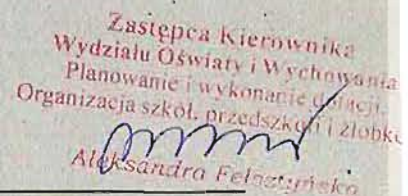 Zastępca Kierownika
Wydziału Oświaty i Wychowania
Planowanie i wykonanie dotacji.
Organizacja szkół, przedszkoli i żłobk
Aleksandra